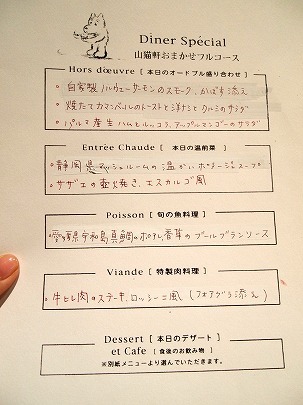 Dîner Spécial
山猫軒おまかせフルコース
Hors d'œuvre [ 本日のオードブル盛り合わせ ]
・自家製ノルウェーサーモンのスモーク、かぶを添え
・焼たてカマンベールのトーストと洋ナシとクルミのサラダ
・パルマ産生ハムとルッコラ、アップルマンゴーのサラダ
Entrée Chaude [ 本日の温前菜 ]
・静岡県マッシュルームの温かいポタージュスープ
・サザエの壷焼き、エスカルゴ風
Poisson [ 旬の魚料理 ]
・愛媛県宇和島真鯛のポワレ香草のブールブランソース
Viande [ 特製肉料理 ]
・牛ヒレ肉のステーキ、ロッシーニ風（フォアグラ添え）
Dessert [ 本日のデザート ]
et Cafe [ 食後のお飲み物 ]
※別紙メニューより選んでいただきます。